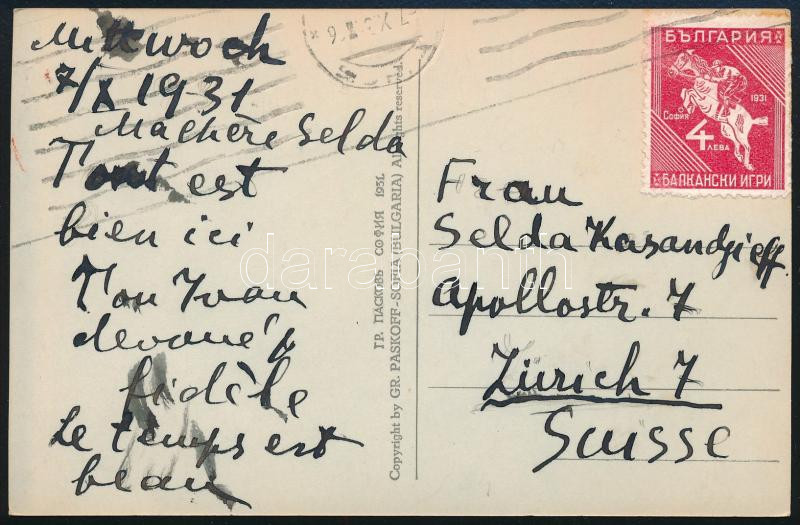 Mittwoch
7/X 1931
Ma chère Selda
Tout est
bien ici
Ton Ivan
devoué &
fidèle
Le temps est
beau
ГР. ПАСКОВЪ СОФИЯ 1931.
Copyright by GR. PASKOFF-SOFIA (BULGARIA) All rights reserved.
БЪЛГАРИЯ
1931
СОФИЯ
4
ЛЕВА
БАЛКАНСКИ ИГРИ
Frau
Selda Kasandjieff
Apollostr. 7
Zürich 7
Suisse
darabanth